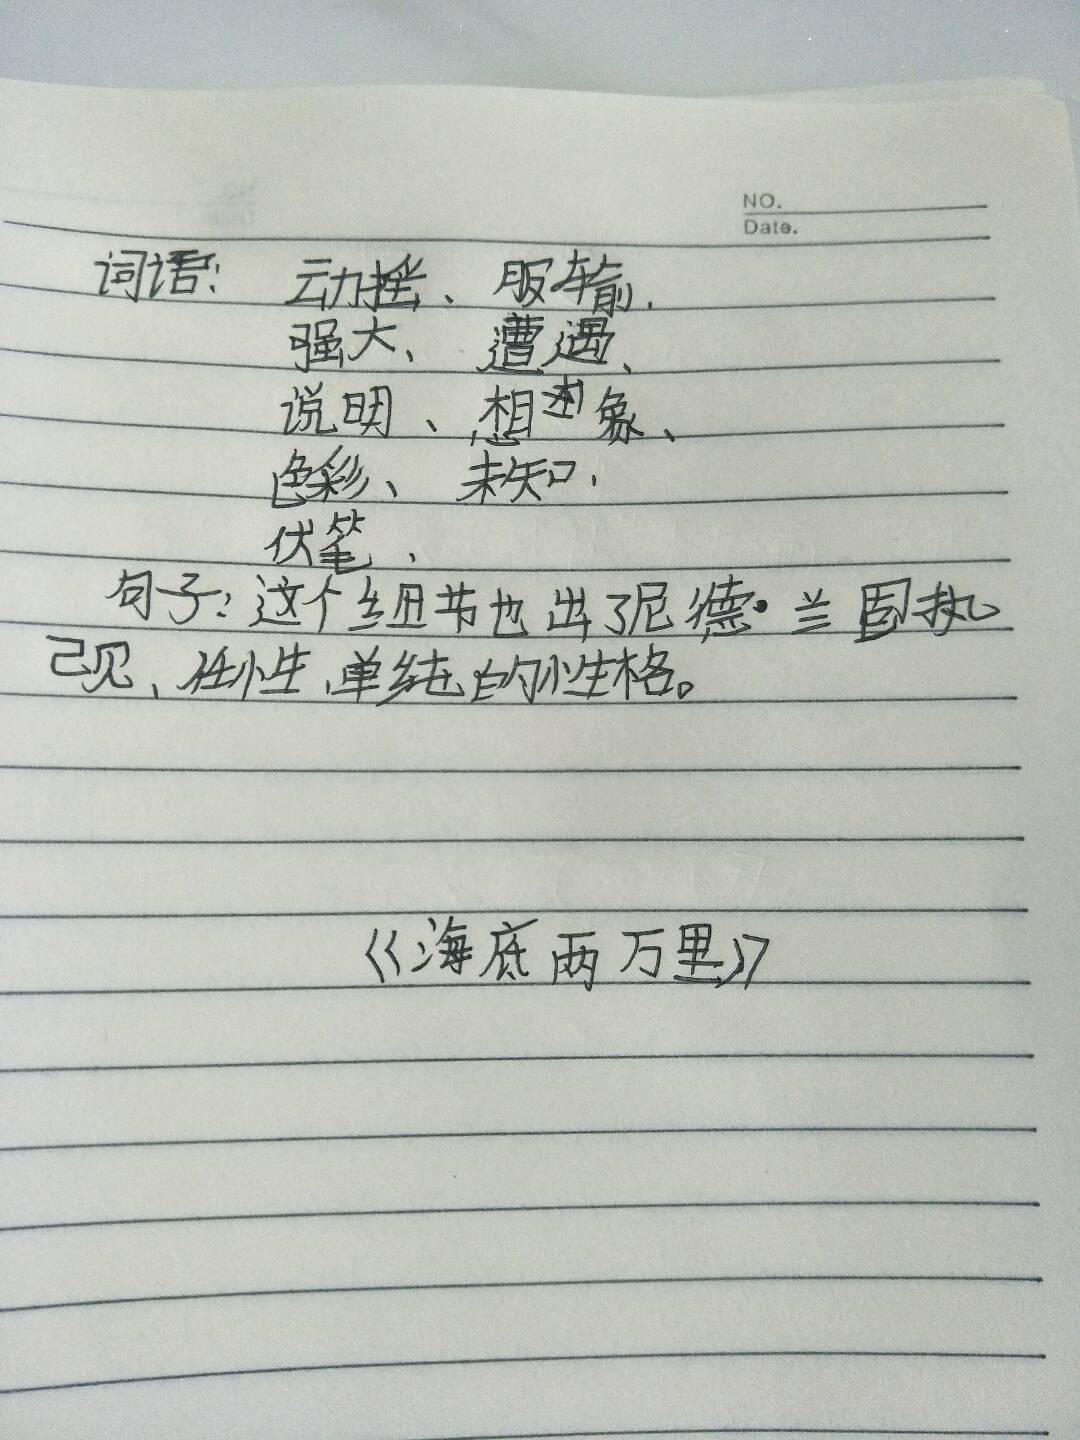 NO.
Date.
词语: 动摇、服输、
强大、遭遇、
说明、想象、
色彩、未知、
伏笔、
句子:这个细节也出了尼德·兰固执
己见、任性、单纯的性格。
《海底两万里》